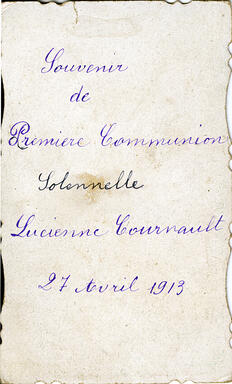 Souvenir
de
Premiere Communion
Solennelle
Lucienne Cournault
27 Avril 1913